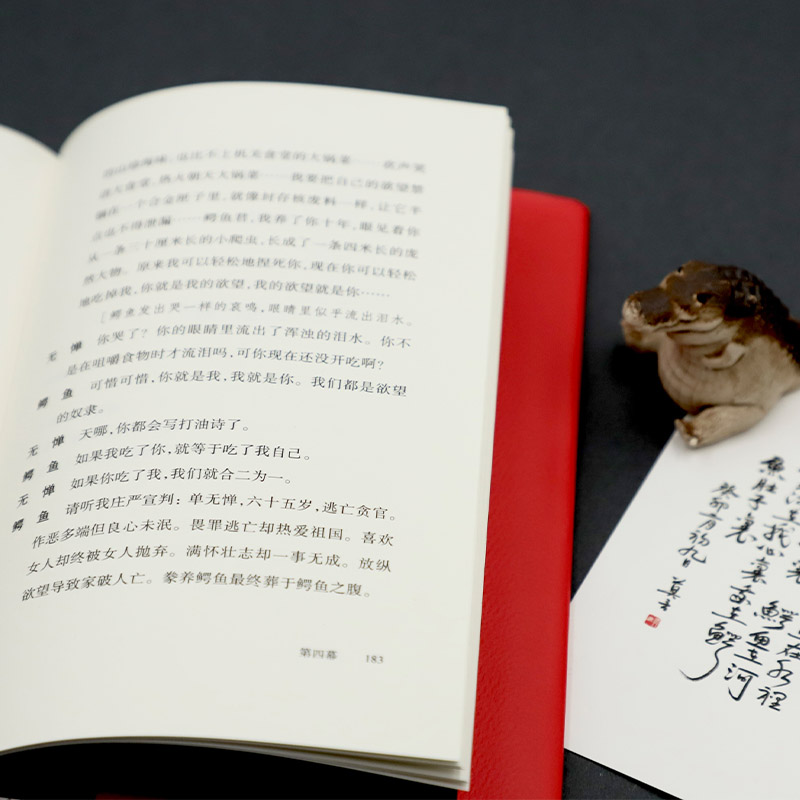 山珍海味，也比不上机关食堂的大锅菜……欢声笑
语大食堂，热火朝天大锅菜……我要把自己的欲望禁
锢在一个合金匣子里，就像封存核废料一样，让它半
点也不得泄漏……鳄鱼君，我养了你十年，眼见着你
从一条三十厘米长的小爬虫，长成了一条四米长的庞
然大物。原来我可以轻松地捏死你，现在你可以轻松
地吃掉我，你就是我的欲望，我的欲望就是你……
［鳄鱼发出哭一样的哀鸣，眼睛里似乎流出泪水。
无惮 你哭了？你的眼睛里流出了浑浊的泪水。你不
是在咀嚼食物时才流泪吗，可你现在还没开吃啊？
鳄鱼 可惜可惜，你就是我，我就是你。我们都是欲望
的奴隶。
无惮 天哪，你都会写打油诗了。
鳄鱼 如果我吃了你，就等于吃了我自己。
无惮 如果你吃了我，我们就合二为一。
鳄鱼 请听我庄严宣判：单无惮，六十五岁，逃亡贪官。
作恶多端但良心未泯。畏罪逃亡却热爱祖国。喜欢
女人却终被女人抛弃。满怀壮志却一事无成。放纵
欲望导致家破人亡。豢养鳄鱼最终葬于鳄鱼之腹。
第四幕 183
在水裡
鱷魚在河
在我心裏
我在鱷
魚肚子裏
癸卯
莫言